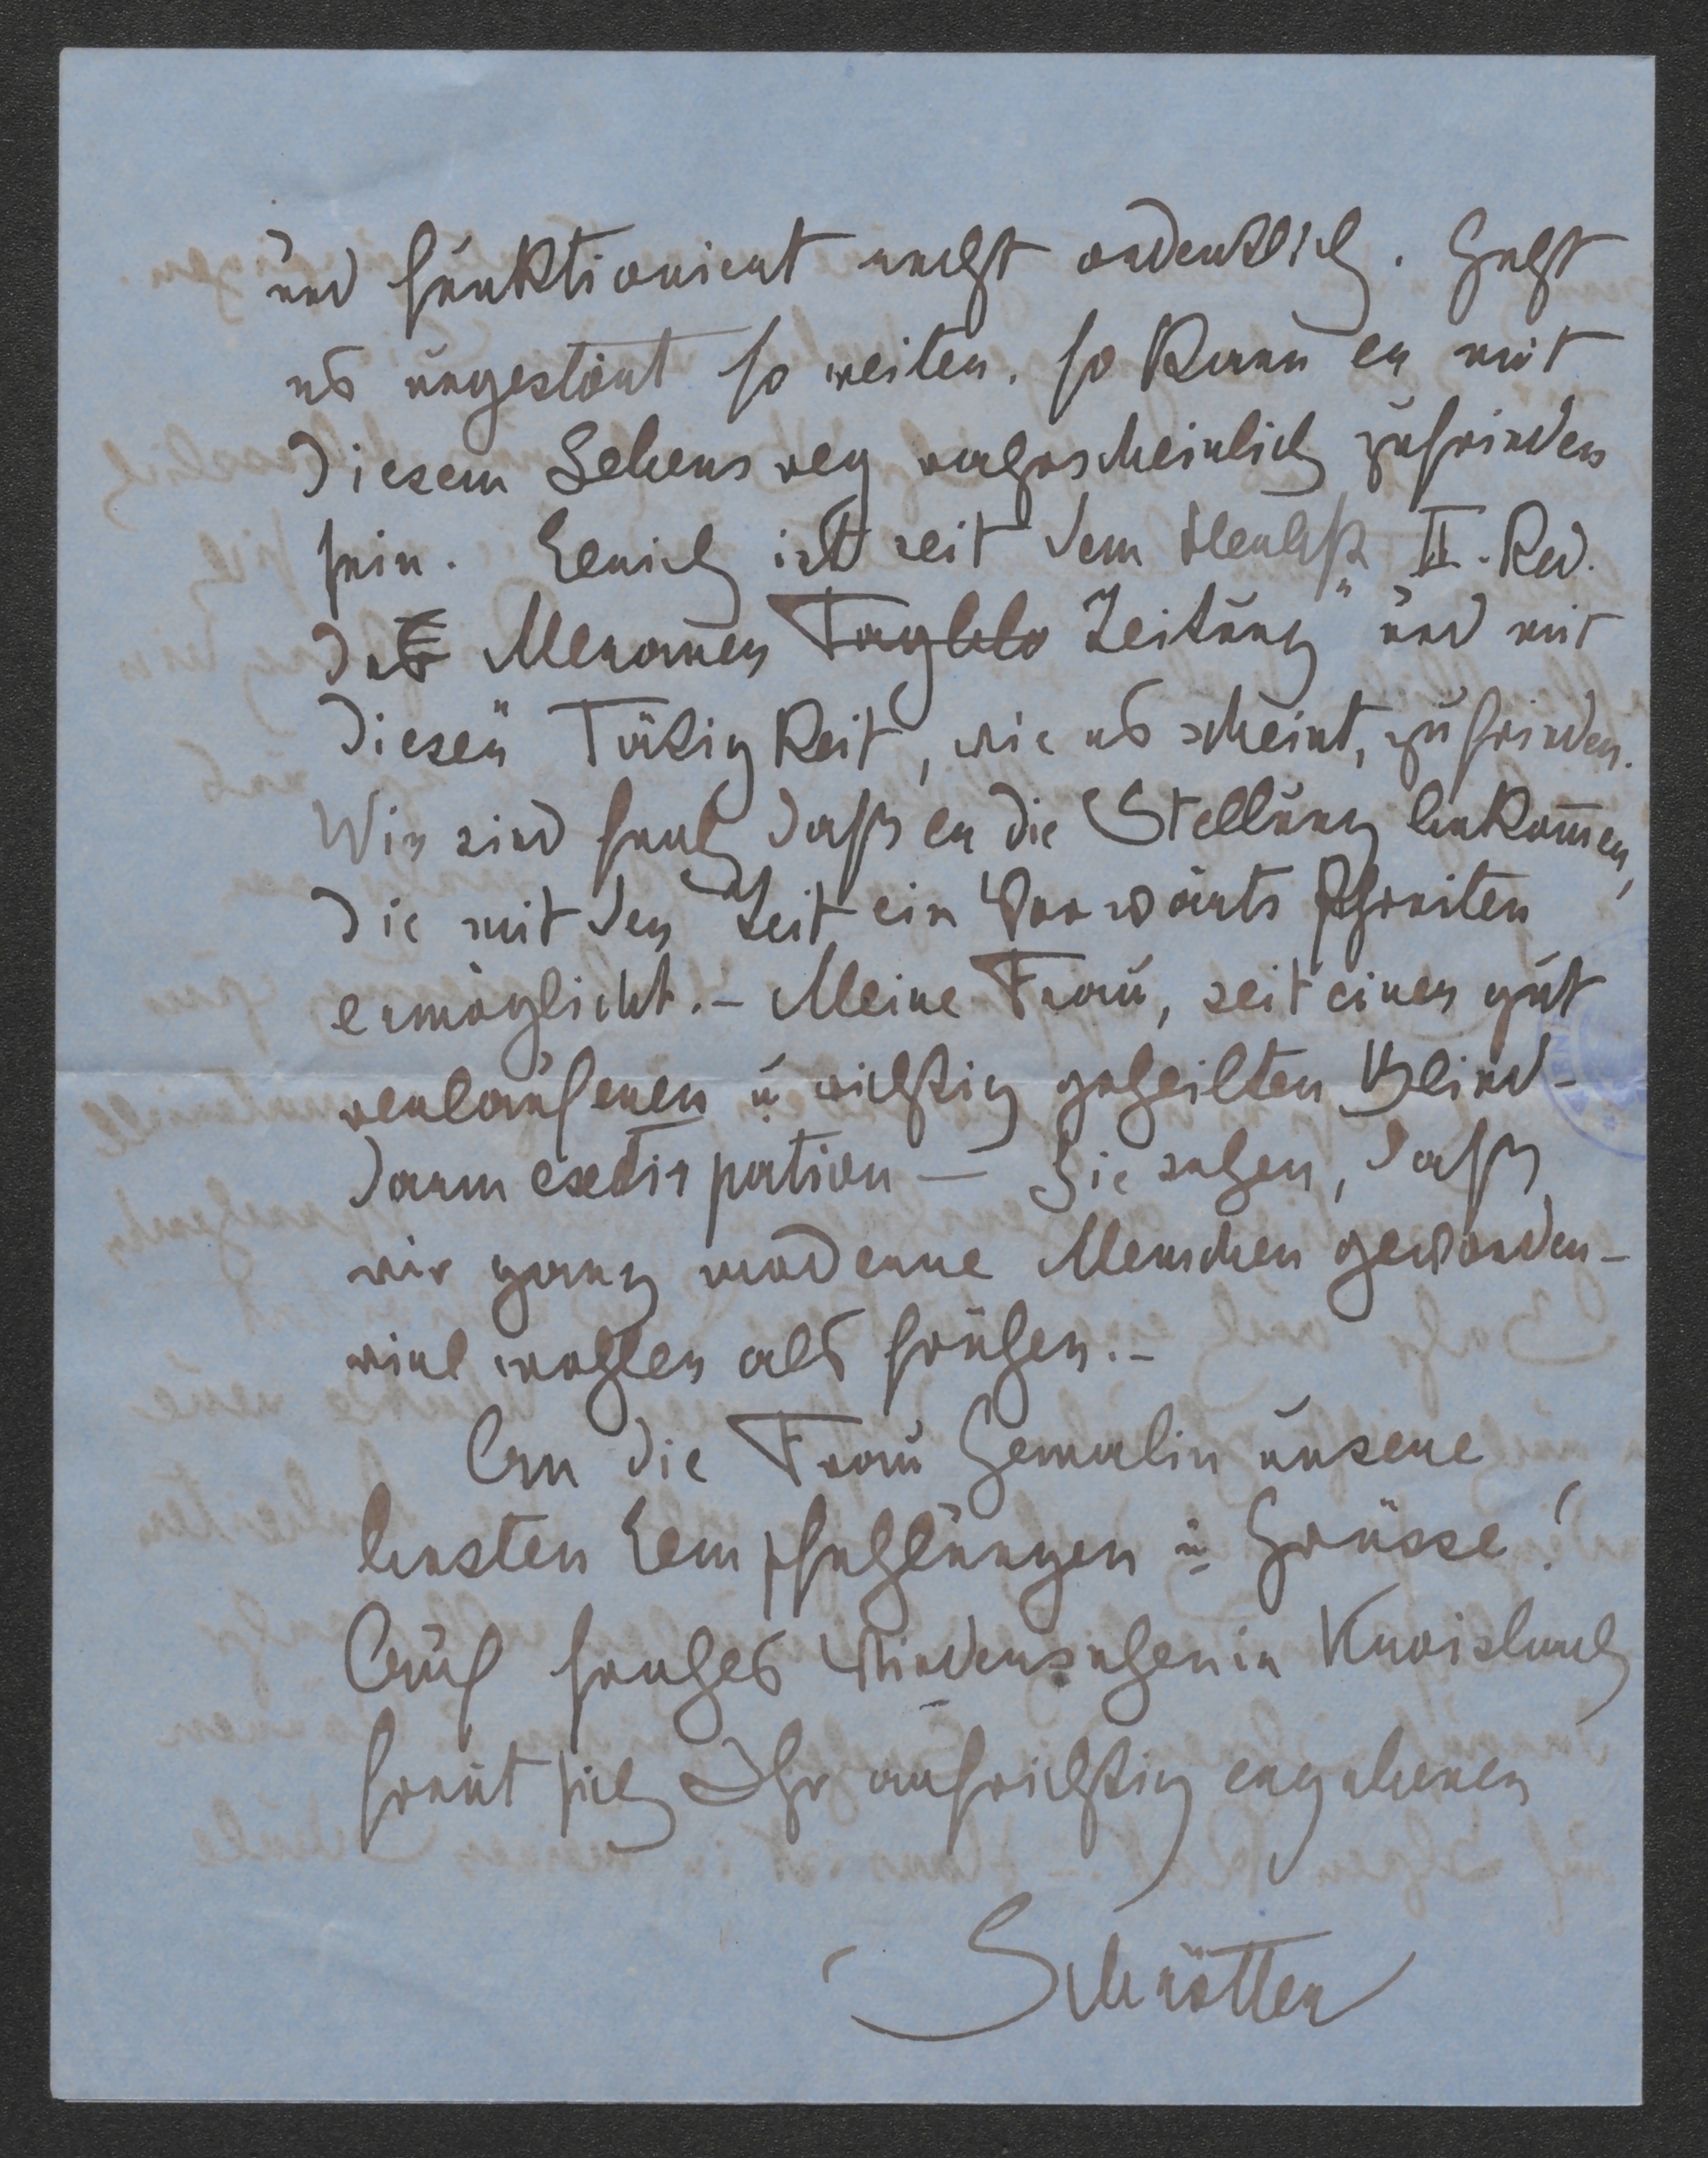 und funktioniert recht ordentlich. Geht
es ungestört so weiter, so kann er mit
diesem Lebensweg wahrscheinlich zufrieden
sein. Erich ist seit dem Herbst II. Red.
der Meraner Zeitung" und mit
dieser Tätigkeit, wie es scheint, zufrieden.
Wir sind froh daß er die Stellung bekommen,
die mit der Zeit ein Vorwärts schreiten
ermöglicht. – Meine Frau, seit einer gut
verlaufenen u richtig geheilten Blind-
darmexstirpation – Sie sehen, daß
wir ganz moderne Menschen geworden –
viel wohler als früher. –
An die Frau Gemalin unsere
besten Empfehlungen u Grüsse!
Auf frohes Wiedersehen in
freut sich Ihr aufrichtig ergebener
Schrötter